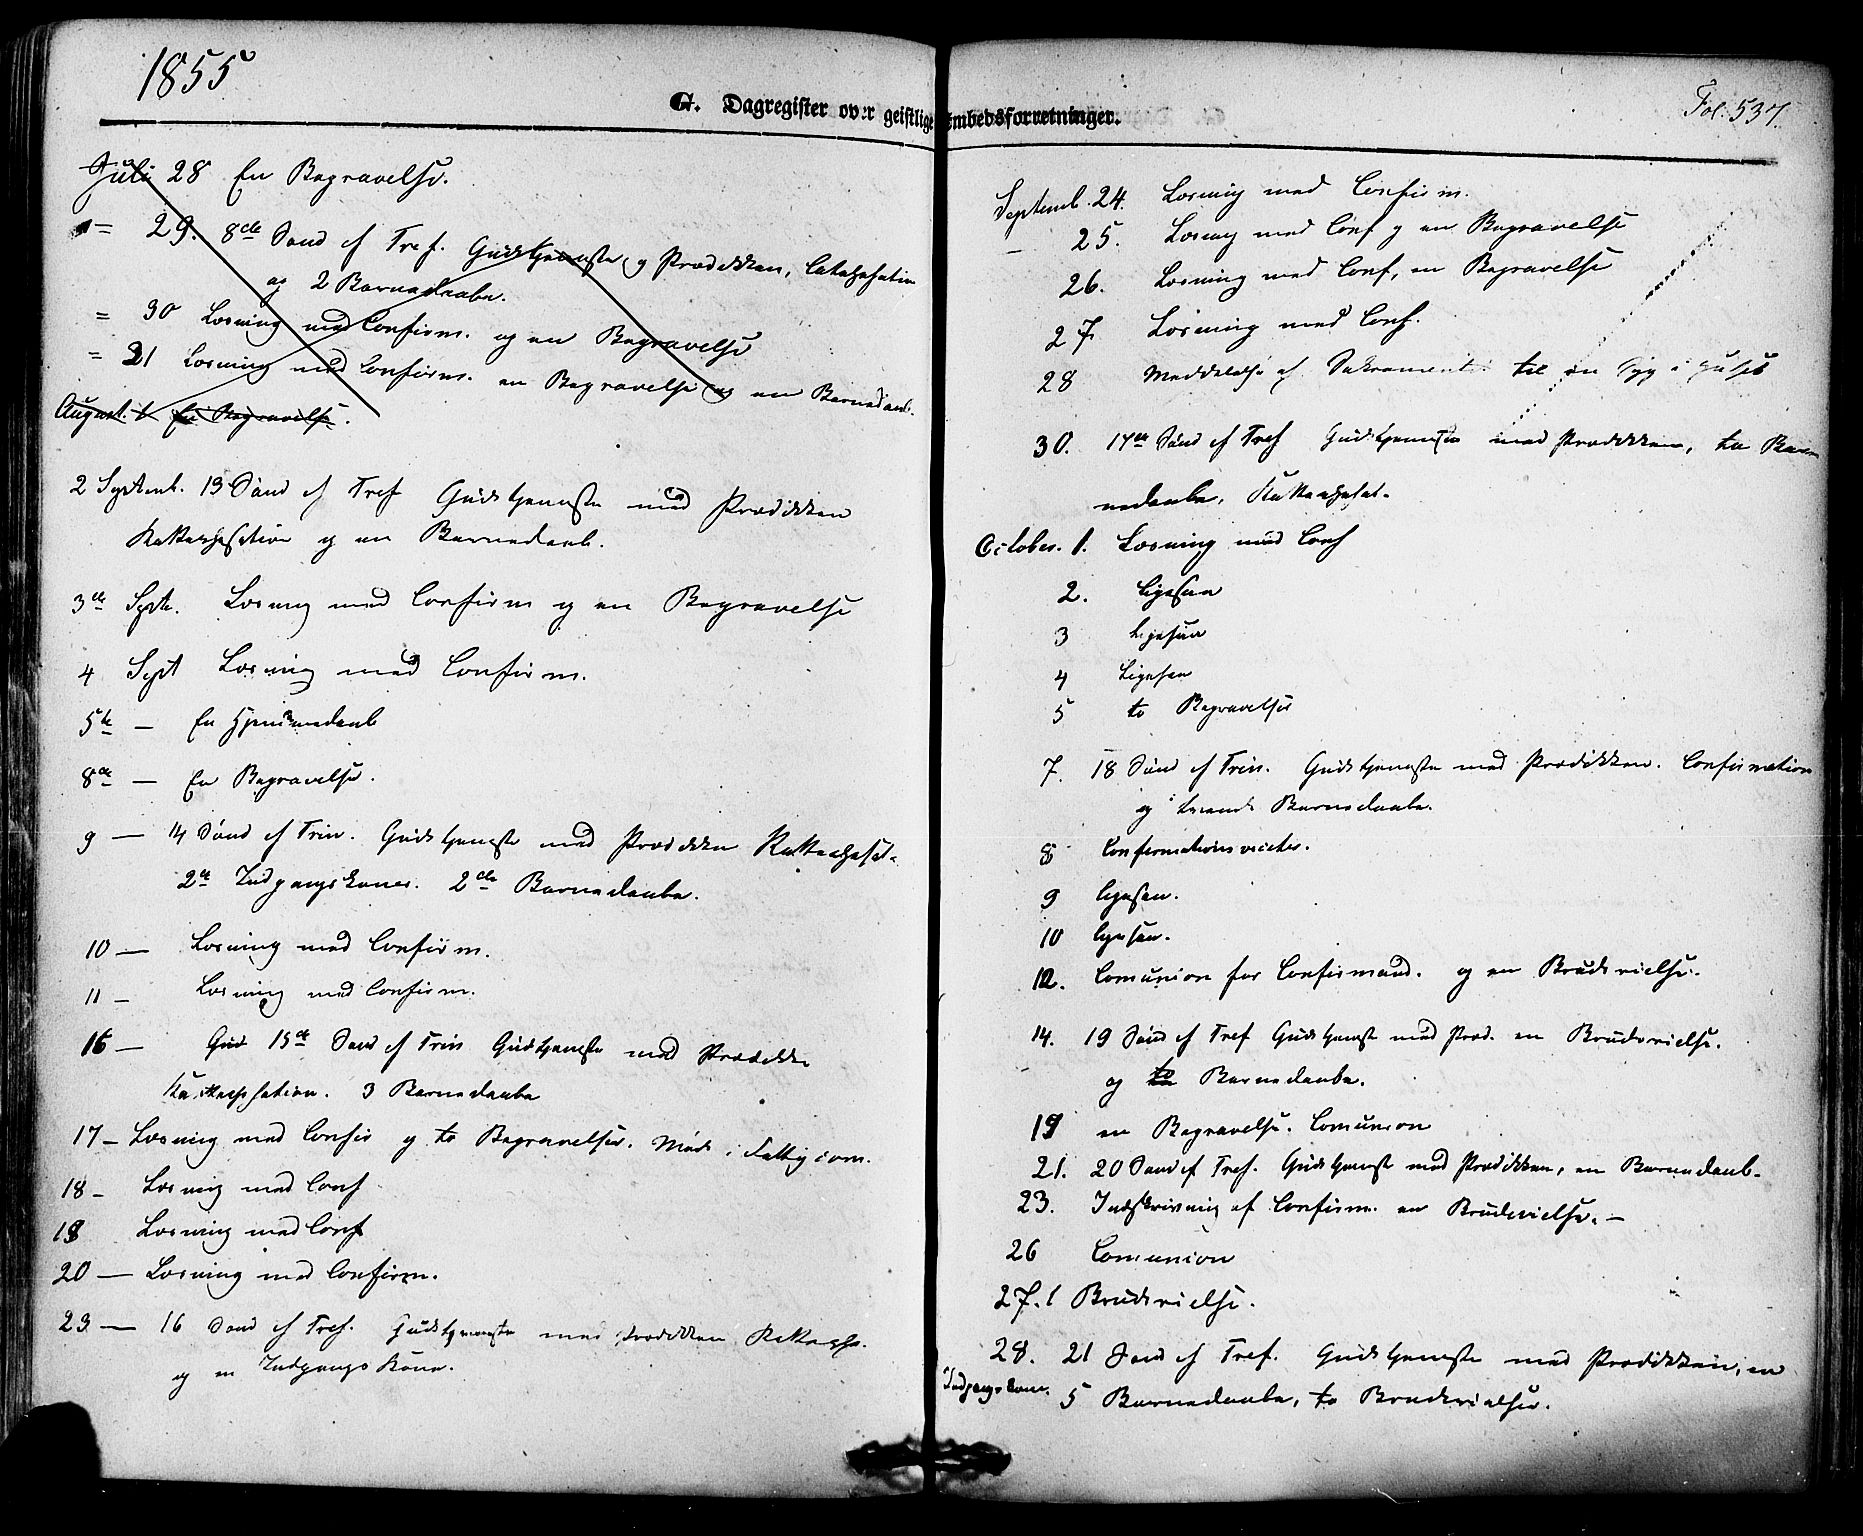 1855
G. Dagregister over geistlige Embedsforretninger.
Fol. 537.
Juli 28 En Begravelse.
= 29. 8de Sønd ef Tref. Gudstjeneste og Prædikken, Catechesation
og 2 Barnedaabe.
= 30 Læsning med Confirm. og en Begravelse
= 31 Læsning med Confirm. en Begravelse og en Barnedaab.
August 1 En Begravelse.
2 Septemb. 13 Sønd ef Tref Gudstjeneste med Prædikken
Kattechesation og en Barnedaab.
3de Septe. Læsning med Confirm og en Begravelse
4 Sept Læsning med Confirm.
5te — En Hjemmedaab
8de — En Begravelse.
9 — 14 Sønd ef Trin. Gudstjeneste med Prædikken Kattecheset.
2de Indgangskoner. 2de Barnedaabe.
10 — Læsning med Confirm.
11 — Læsning med Confirm.
16 — Gud 15de Sønd ef Trin Gudstjeneste med Prædikke
Kattechesation. 3 Barnedaabe
17 — Læsning med Confir og to Begravelser. Møde i Fattigcom.
18 — Læsning med Conf
19 Læsning med Conf
20 — Læsning med Confirm.
23 — 16 Sønd ef Tref. Gudstjeneste med Prædikken Kateche.
og en Indgangs Kone.
Septemb. 24. Læsning med Confirm.
— 25. Læsning med Conf og en Begravelse
26. Læsning med Conf, en Begravelse
27. Læsning med Conf.
28 Meddelelse af Sakramentet til en Syg i Huset
30. 17de Sønd ef Tref Gudstjeneste med Prædikken, to Bar
nedaabe, Kattecheset.
October. 1. Læsning med Conf
2. Ligesaa
3 Ligesaa
4 Ligesaa
5 to Begravelser
7. 18 Sønd ef Trin. Gudstjeneste med Prædikken. Confirmation
og Barnedaabe.
8 Confirmations
9 ligesaa.
10 ligesaa.
12. Comunion for Confirmand. og en Brudevielse.
14. 19 Sønd ef Tref Gudstjenest med Præd. en Brudevielse.
og to Barnedaabe.
19 en Begravelse. Comunion
21. 20 Sønd ef Tref. Gudstjenest med Prædikken, en Barnedaab.
23. Indskrivning af Confirm. en Brudevielse. —
26 Comunion
27. 1 Brudevielse.
28. 21 Sønd ef Tref. Gudstjeneste med Prædikken, en
Indgangskone. 5 Barnedaabe, to Brudevielser.